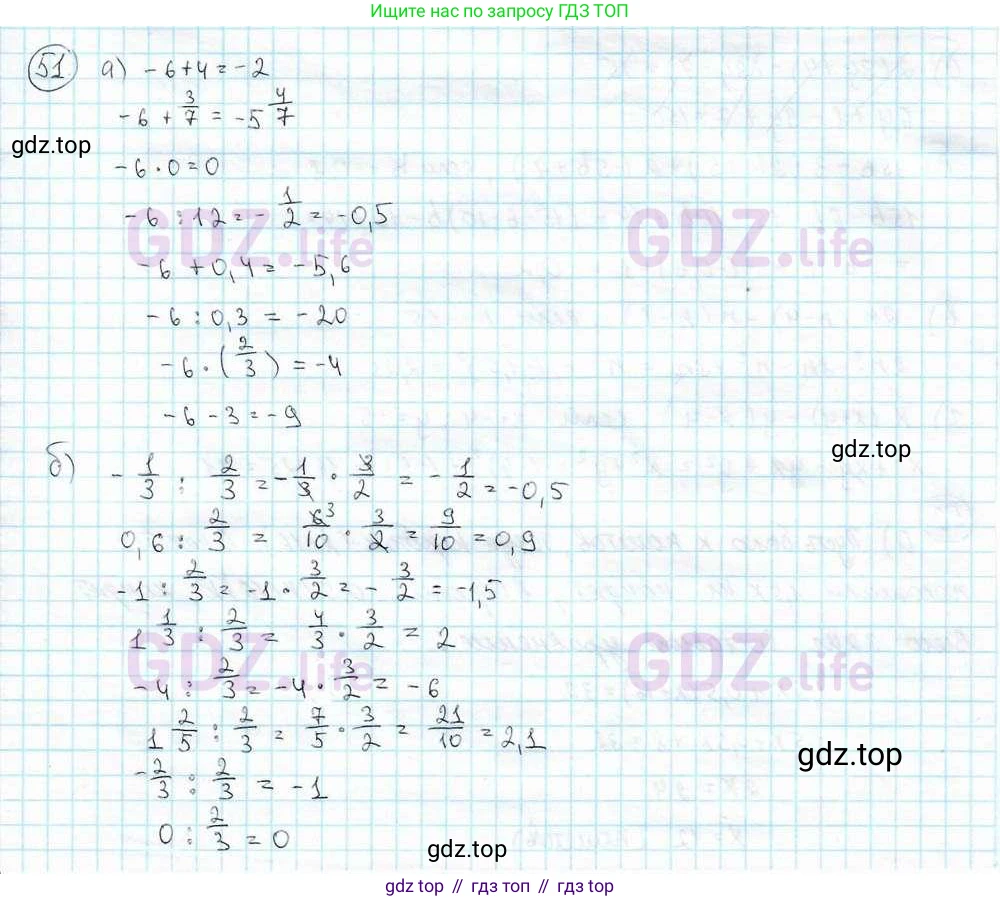 Ищите ответы по запросу ГДЗ ТОП
51 а) -6+4=-2
-6 + 3/7 = -5 4/7
gdz.top
-6·0=0
-6 : 12 = -1/2 = -0,5
GDZ.life GDZ.life
-6 + 0,4 = -5,6
-6 : 0,3 = -20
-6·(2/3) = -4
-6 - 3 = -9
gdz.top
б) -1/3 : 2/3 = -1/3 · 3/2 = -1/2 = -0,5
0,6 : 2/3 = 6/10 3 · 3/2 = 9/10 = 0,9
-1 : 2/3 = -1 · 3/2 = -3/2 = -1,5
1 1/3 : 2/3 = 4/3 · 3/2 = 2
GDZ.life GDZ.life
-4 : 2/3 = -4 · 3/2 = -6
1 2/5 : 2/3 = 7/5 · 3/2 = 21/10 = 2,1
gdz.top
-2/3 : 2/3 = -1
0 : 2/3 = 0
gdz.top
gdz top // гдз топ // гдз top